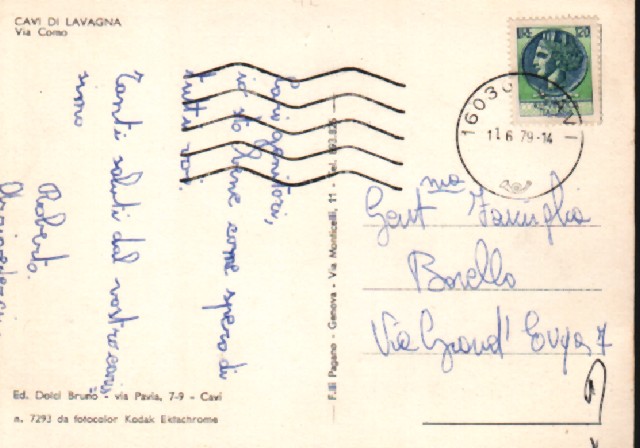 CAVI DI LAVAGNA
Via Como
LIRE 120
16030 CAVI
11.6.79-14
Cari genitori,
io sto bene come spero di
tutti voi.
Tanti saluti dal vostro
Roberto.
F.lli Pagano - Genova - Via Monticelli, 11 - Tel. 893.826
Gent.ma Famiglia
Borello
Via Grand'
7
Ed. Dolci Bruno - via Pavia, 7-9 - Cavi
n. 7293 da fotocolor Kodak Ektachrome